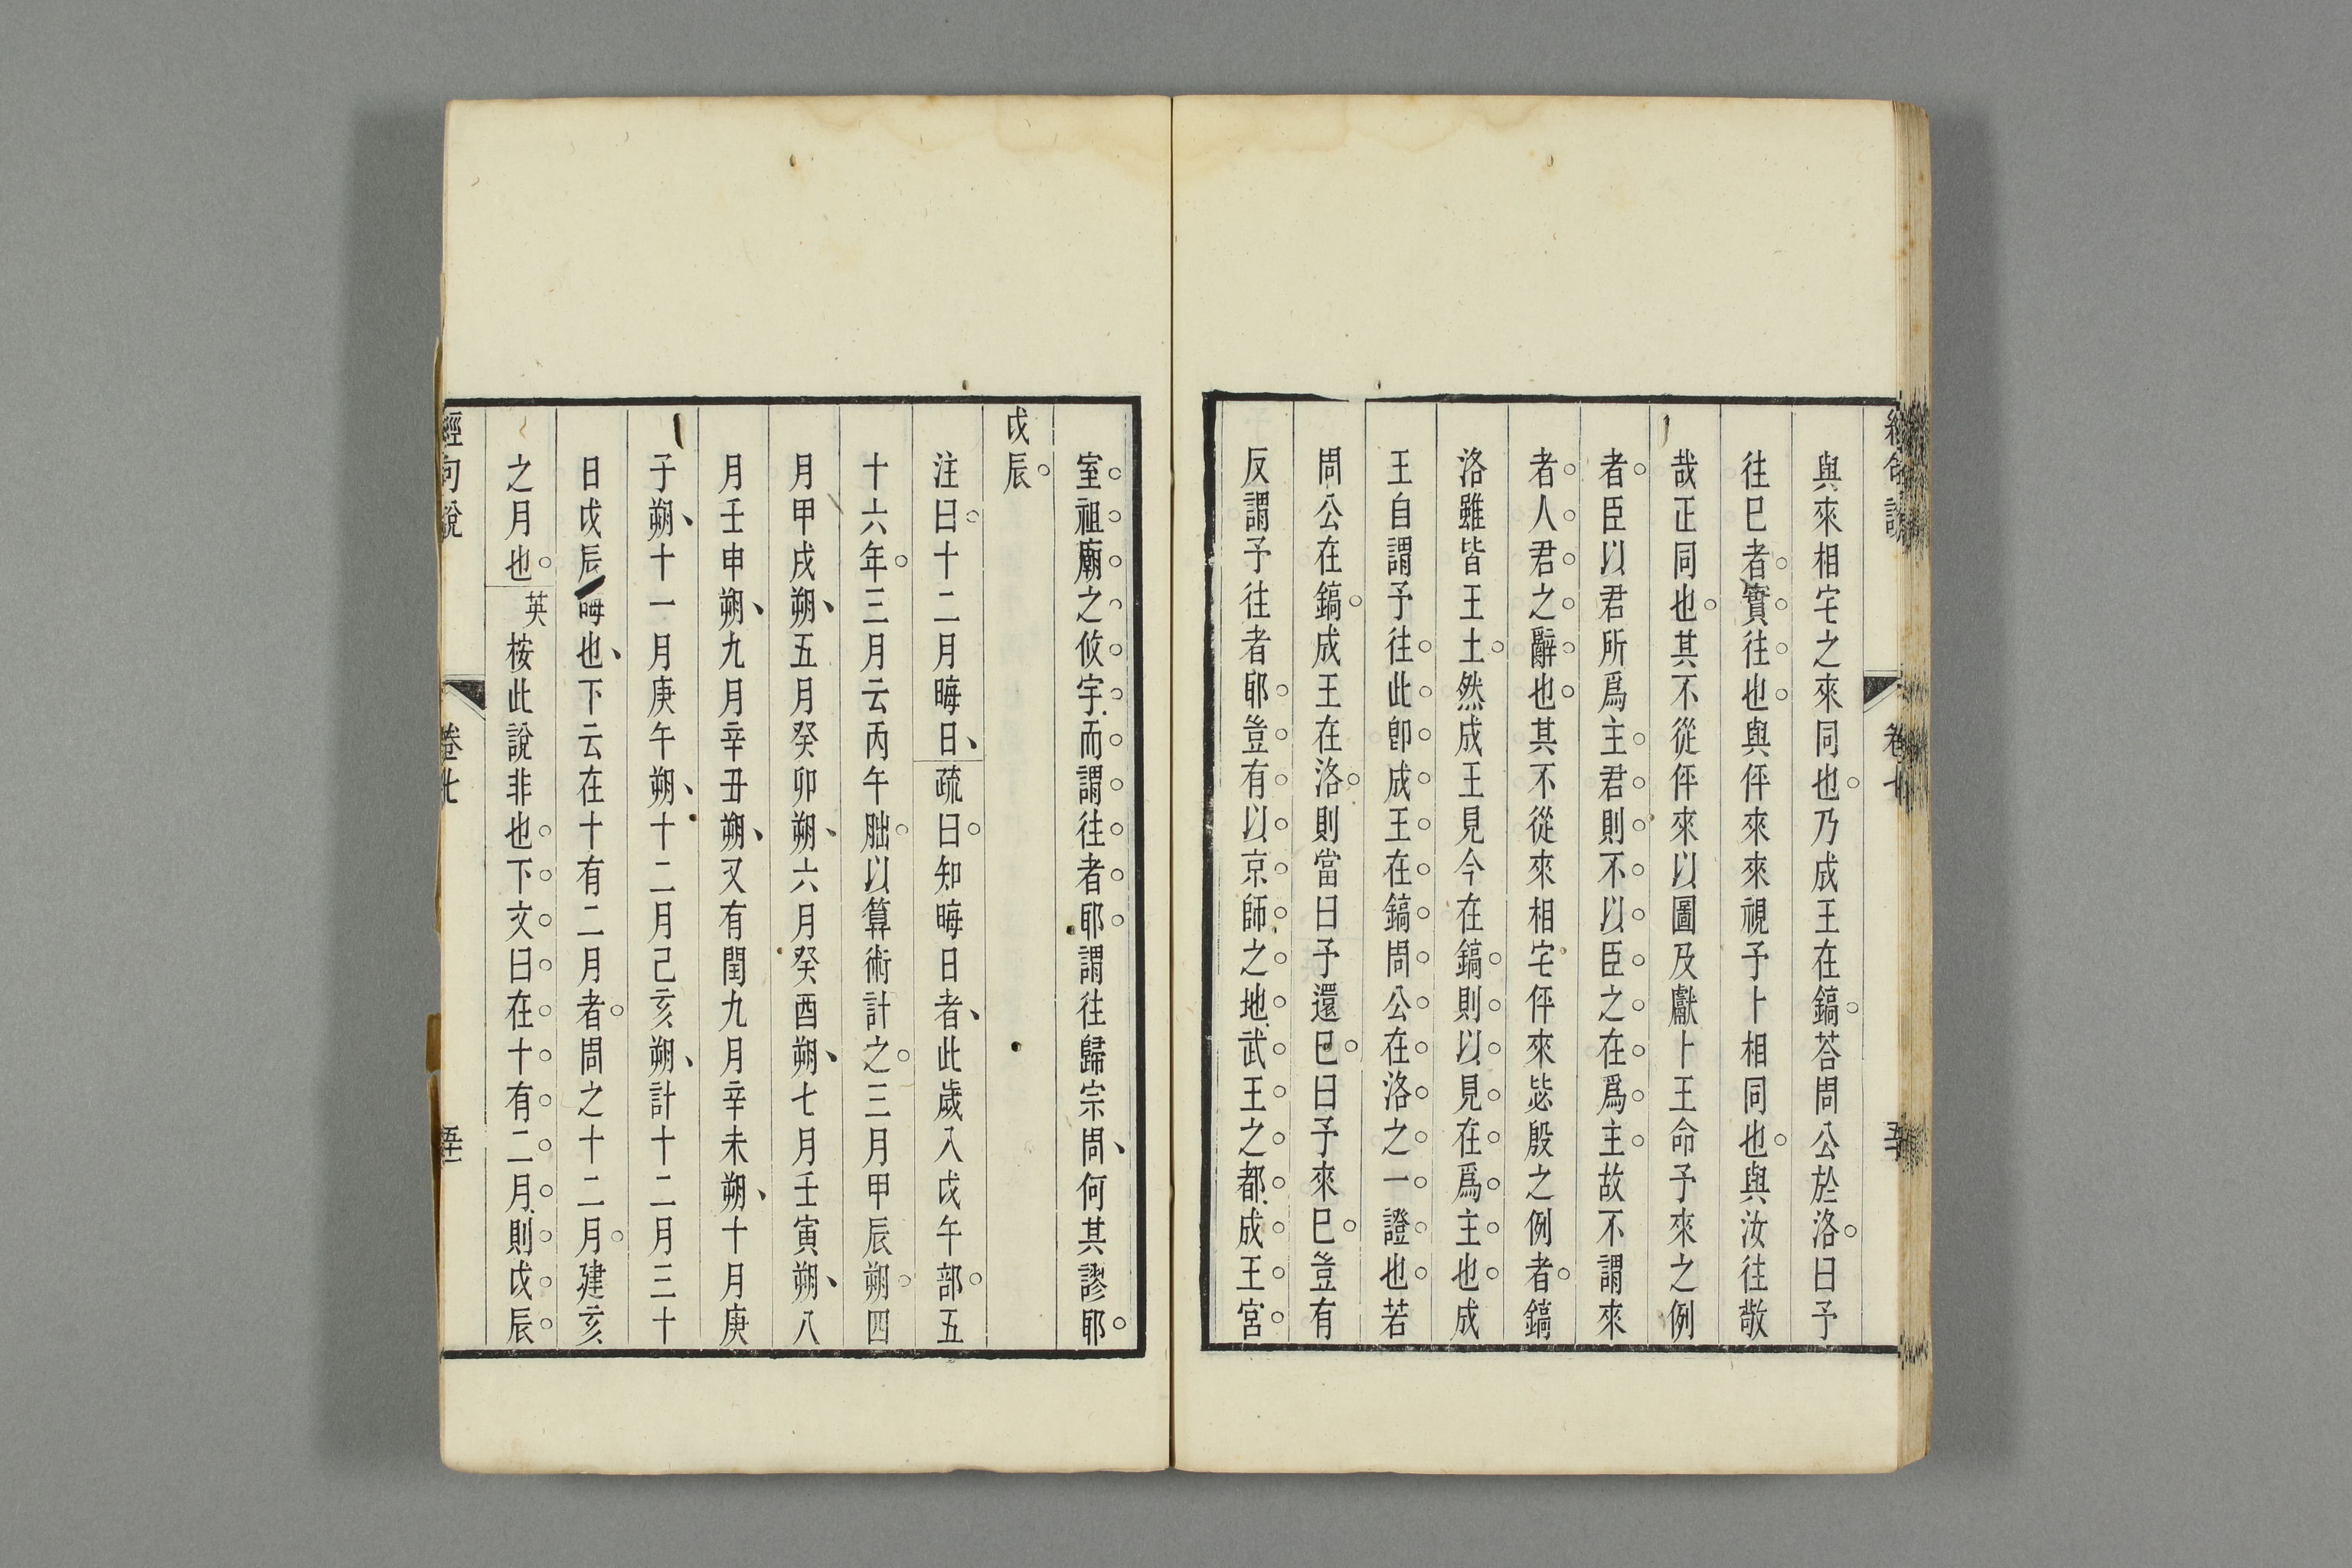 與來相宅之來同也乃成王在鎬荅周公於洛曰予
往巳者實往也與伻來來視予卜相同也與汝往敬
哉正同也其不從伻來以圖及獻卜王命予來之例
者臣以君所爲主君則不以臣之在爲主故不謂來
者人君之辭也其不從來相宅伻來毖殷之例者鎬
洛雖皆王土然成王見今在鎬則以見在爲主也成
王自謂予往此卽成王在鎬周公在洛之一證也若
周公在鎬成王在洛則當曰予還巳曰予來巳豈有
反謂予往者耶豈有以京師之地武王之都成王宮
卷七
室祖廟之攸宇而謂往者耶謂往歸宗周何其謬耶
戊辰
注曰十二月晦日疏曰知晦日者此歲入戊午部五
十六年三月云丙午朏以算術計之三月甲辰朔四
月甲戌朔五月癸卯朔六月癸酉朔七月壬寅朔八
月壬申朔九月辛丑朔又有閏九月辛未朔十月庚
子朔十一月庚午朔十二月己亥朔計十二月三十
日戊辰晦也下云在十有二月者周之十二月建亥
之月也英桉此說非也下文曰在十有二月則戊辰
經句說
卷七